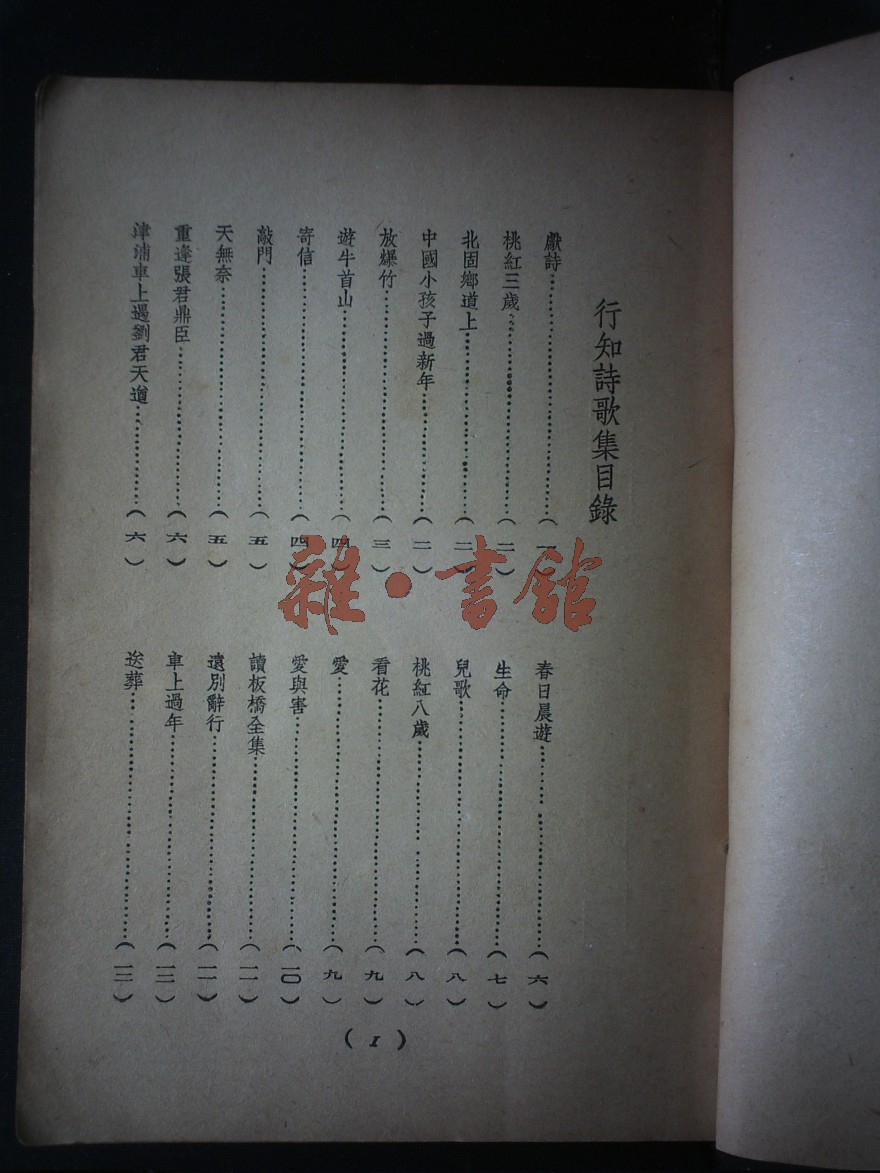 行知詩歌集目錄
獻詩……(一)
桃紅三歲……(二)
北固鄉道上……(二)
中國小孩子過新年……(二)
放爆竹……(三)
遊牛首山……(四)
寄信……(四)
敲門……(五)
天無奈……(五)
重逢張君鼎臣……(六)
津浦車上遇劉君天遒……(六)
春日晨遊……(六)
生命……(七)
兒歌……(八)
桃紅八歲……(八)
看花……(九)
愛……(九)
愛與害……(一〇)
讀板橋全集……(一一)
遠別辭行……(一一)
車上過年……(一二)
送葬……(一三)
(1)
雜·書館